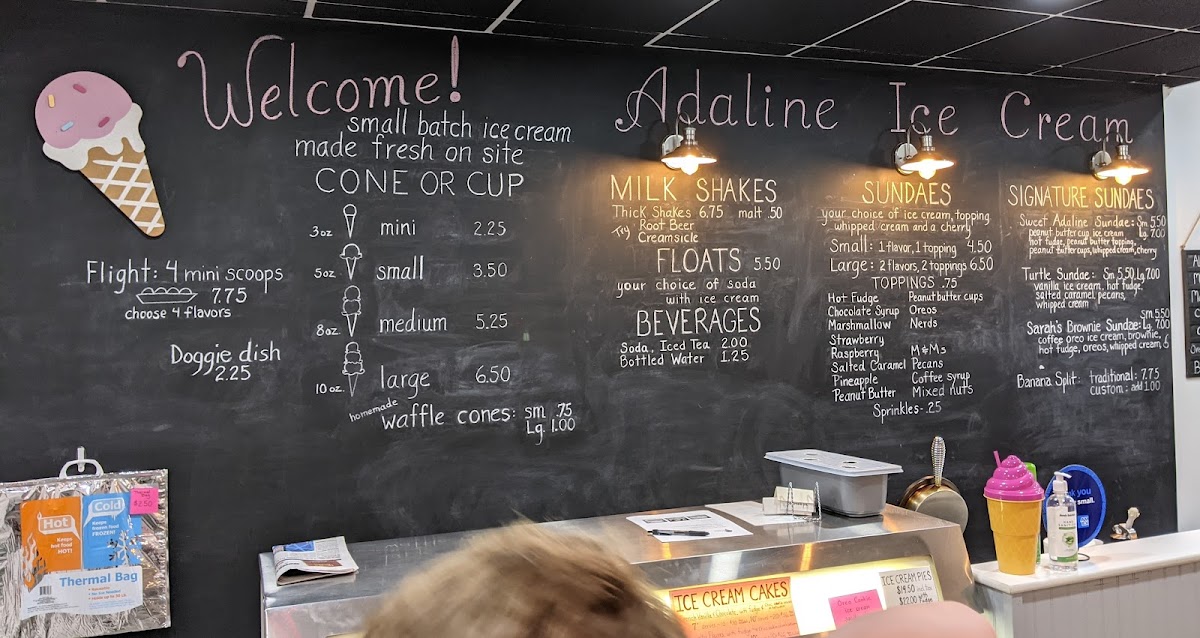 Welcome!
small batch ice cream
made fresh on site
CONE OR CUP
3oz mini 2.25
5oz small 3.50
8oz. medium 5.25
10oz. large 6.50
homemade waffle cones: sm .75
Lg. 1.00
Flight: 4 mini scoops
7.75
choose 4 flavors
Doggie dish
2.25
Adaline Ice Cream
MILK SHAKES
Thick Shakes 6.75 malt .50
Try Root Beer
Creamsicle
FLOATS 5.50
your choice of soda
with ice cream
BEVERAGES
Soda, Iced Tea 2.00
Bottled Water 1.25
SUNDAES
your choice of ice cream, topping
whipped cream and a cherry
Small: 1 flavor, 1 topping 4.50
Large: 2 flavors, 2 toppings 6.50
TOPPINGS .75
Hot Fudge Peanut butter cups
Chocolate Syrup Oreos
Marshmallow Nerds
Strawberry
Raspberry M&Ms
Salted Caramel Pecans
Pineapple Coffee syrup
Peanut Butter Mixed nuts
Sprinkles- .25
SIGNATURE SUNDAES
Sweet Adaline Sundae: Sm 5.50
Lg 7.00
peanut butter cup ice cream
hot fudge, peanut butter topping,
peanut butter cups, whipped cream, cherry
Turtle Sundae: Sm 5.50 Lg 7.00
vanilla ice cream, hot fudge,
salted caramel, pecans,
whipped cream
Sm 5.50
Sarah's Brownie Sundae: Lg 7.00
coffee oreo ice cream, brownie,
hot fudge, oreos, whipped cream,
Banana Split: traditional: 7.75
custom: add 1.00
Thermal Bag
$2.50
Hot
Keeps
hot food
HOT!
Cold
Keeps
frozen food
FROZEN!
Thermal Bag
ICE CREAM CAKES
ICE CREAM PIES
$14.50
$22.00